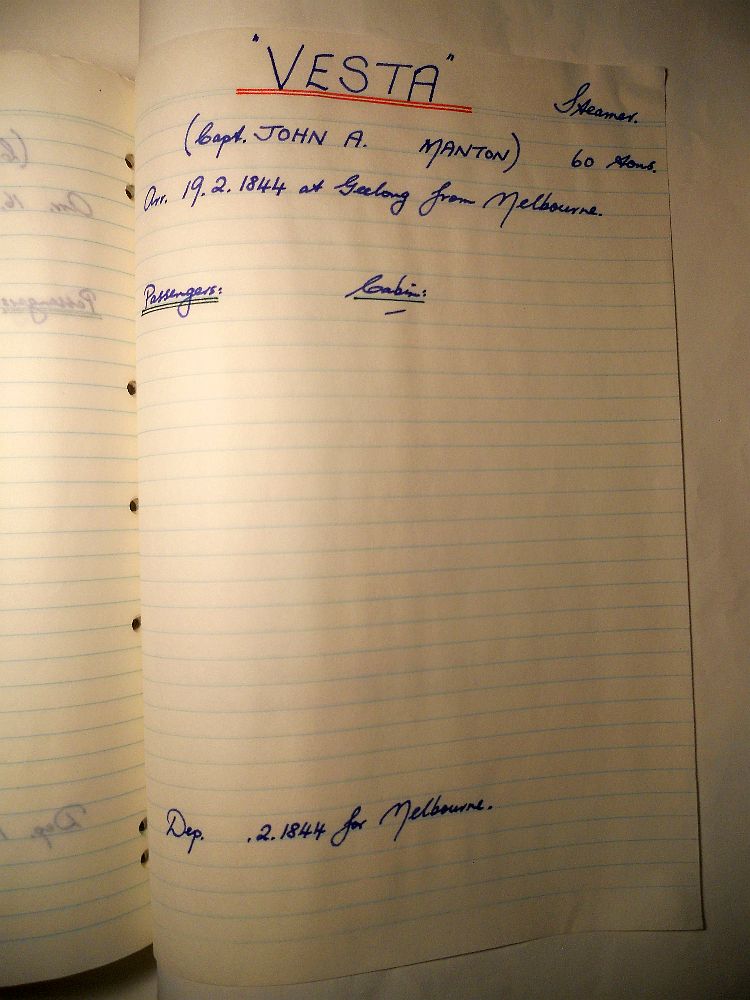 "VESTA"
Steamer.
(Capt. JOHN A. MANTON) 60 tons.
Arr. 19.2.1844 at Geelong from Melbourne.
Passengers: Cabin:
Dep. .2.1844 for Melbourne.